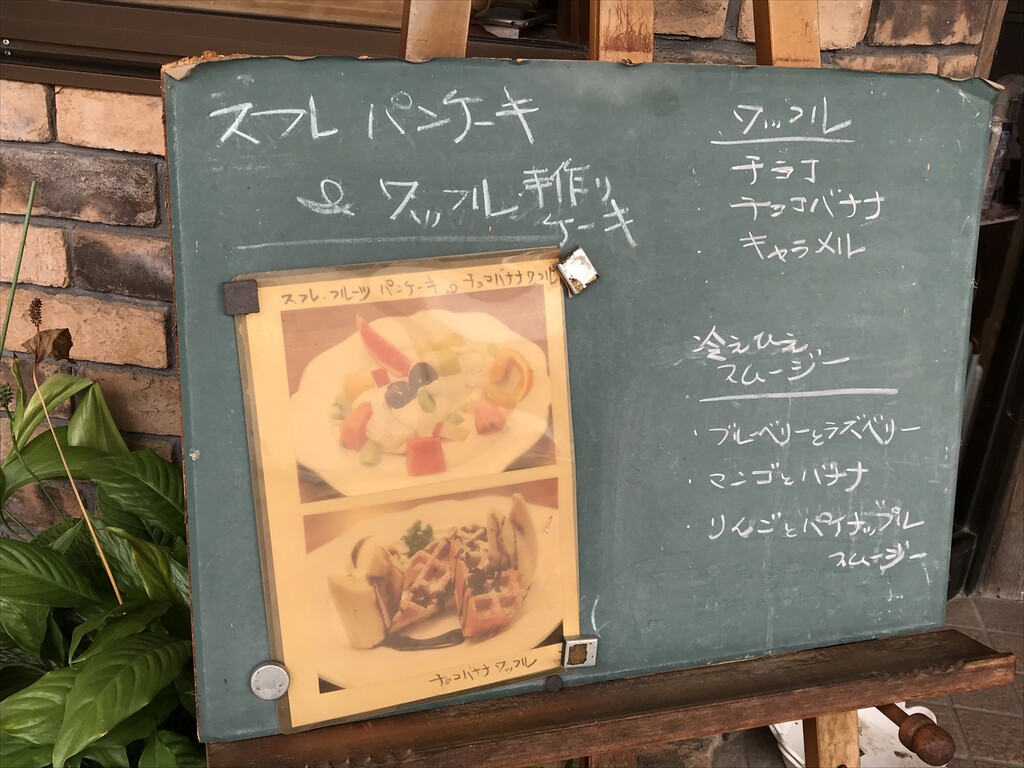 スフレ パンケーキ
& ワッフル 手作り
ケーキ
スフレ.フルーツ パンケーキ & チョコバナナワッフル
チョコバナナ ワッフル
ワッフル
チョコバナナ
キャラメル
冷えひえ
スムージー
・ブルーベリーとラズベリー
・マンゴとバナナ
・りんごとパイナップル
スムージー